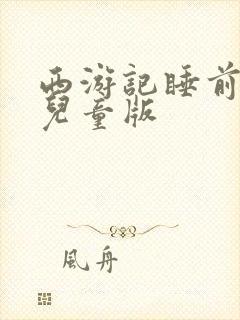 西游記睡前
兒童版
風舟